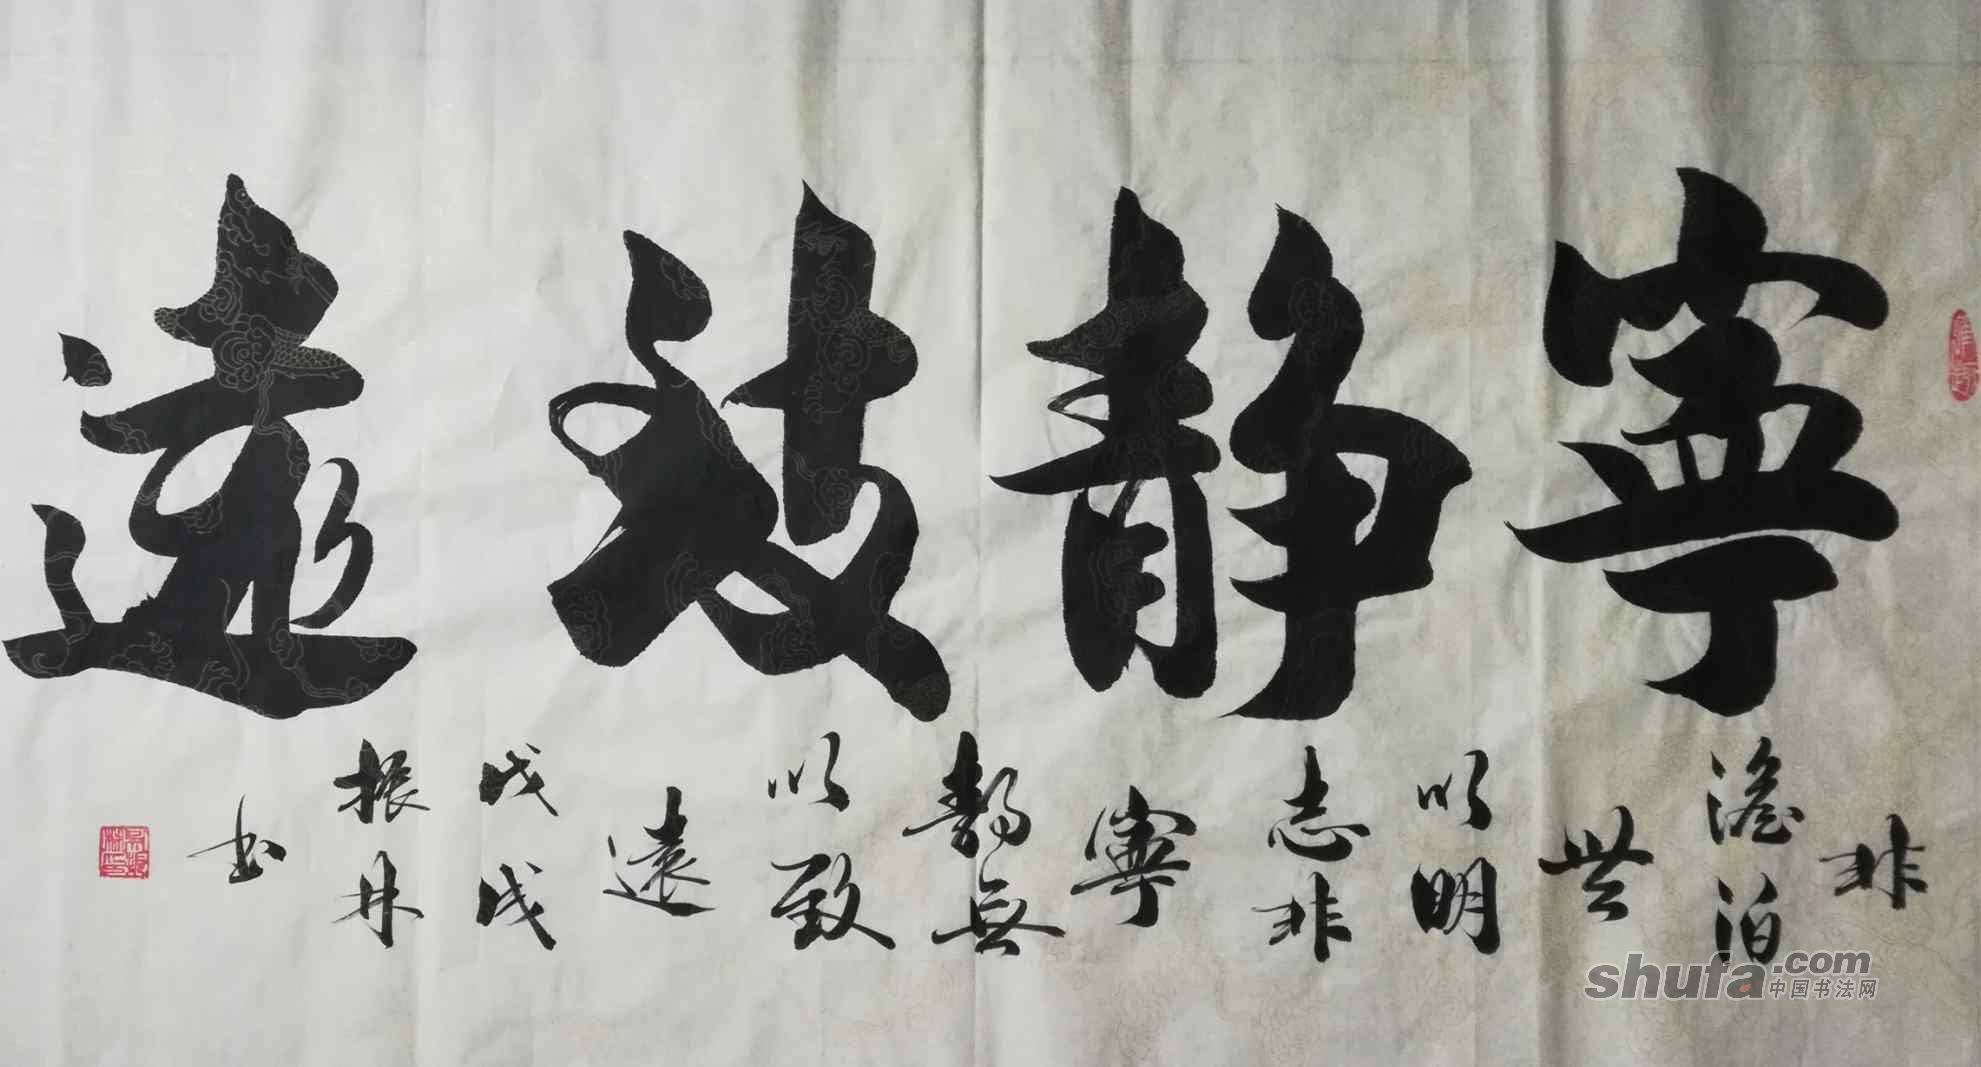 寧静致遠
非
澹泊
無
以明
志非
寧
静無
以致
遠
戊戌
振林
书
shufa.com
中国书法网